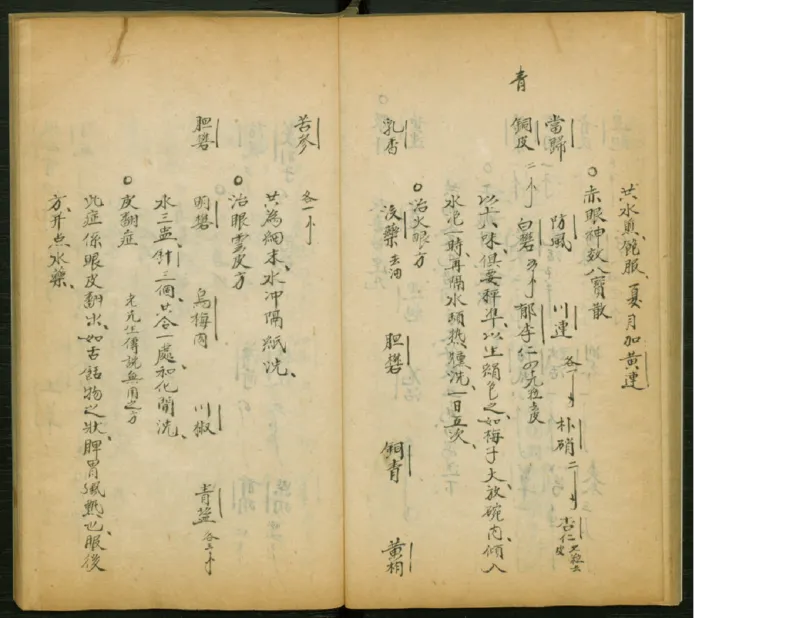 共水煎飽服、夏月加黃連
○赤眼神效八寶散
當歸 防風 川連 各一 朴硝二 杏仁 粒去皮
青
銅皮二 白礬 郁李仁四九粒去皮
以上八味俱要秤準、以生絹包之如梅子大放碗內傾入
水電一時再隔水頓熱 洗一日五次、
○治火眼方
乳香 沒藥去油 胆礬 銅青 黃柏
苦參
各一
共為細末、水冲隔紙洗、
○治眼雲皮方
胆礬 明礬 烏梅肉 川椒 青盐各三
水三盅、針三個共合一處和化開洗、
○皮翻症 老先生傳說無用之方
此症係眼皮翻出、如舌餂物之狀脾胃風熱也服後
方、开点水藥、